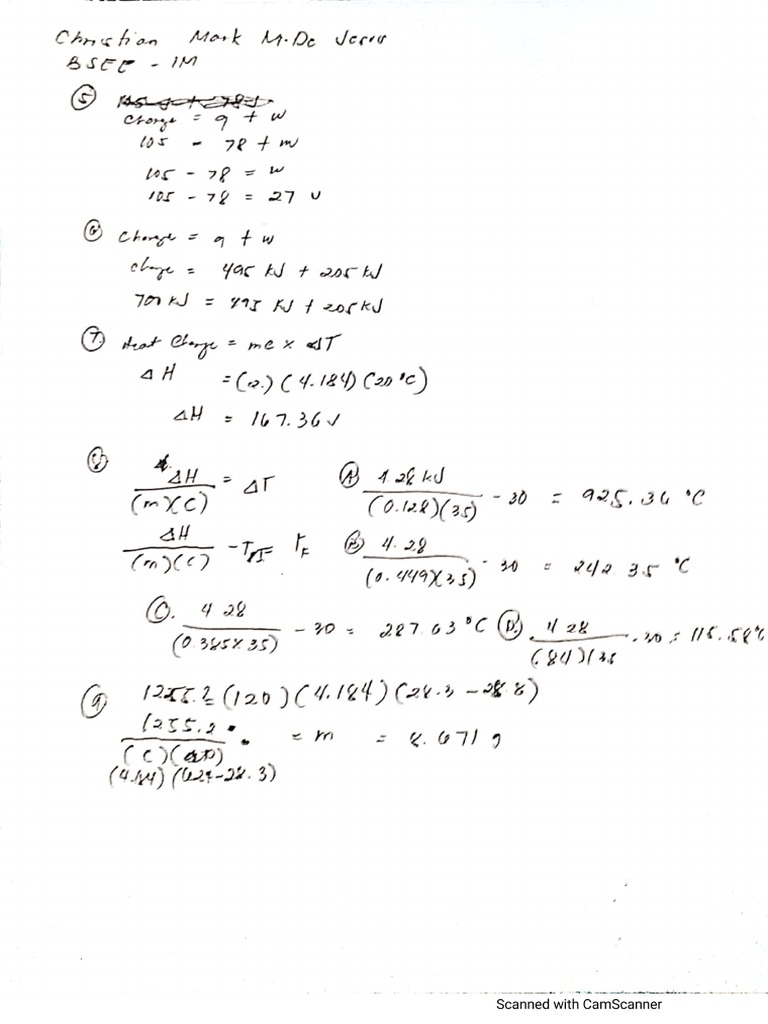 Christian Mark M. De Jesus
BSEE - 1M
⑤
Charge = q + w
105 - 78 + w
105 - 78 = w
105 - 78 = 27 J
⑥ Charge = q + w
charge = 495 kJ + 205 kJ
700 kJ = 495 kJ + 205 kJ
⑦ Heat Charge = mc x ΔT
ΔH = (2.) (4.184) (20 °C)
ΔH = 167.36 J
⑧ ΔH / (m)(C) = ΔT
Ⓐ 4.28 kJ / (0.128)(35) - 30 = 925.36 °C
ΔH / (m)(C)
Ⓑ 4.28 / (0.449)(35) - 30 = 242 35 °C
C. 4 28 / (0.385)(35) - 30 = 287.63 °C
Ⓓ 4 28 / (.84)(35 - 30 = 115.58°C
⑨ 1255.2 = (120) (4.184) (28.3 - 28.8)
1255.2 / (C)(ΔT) = m = 8.671 g
(4.184) (62.9-28.3)
Scanned with CamScanner